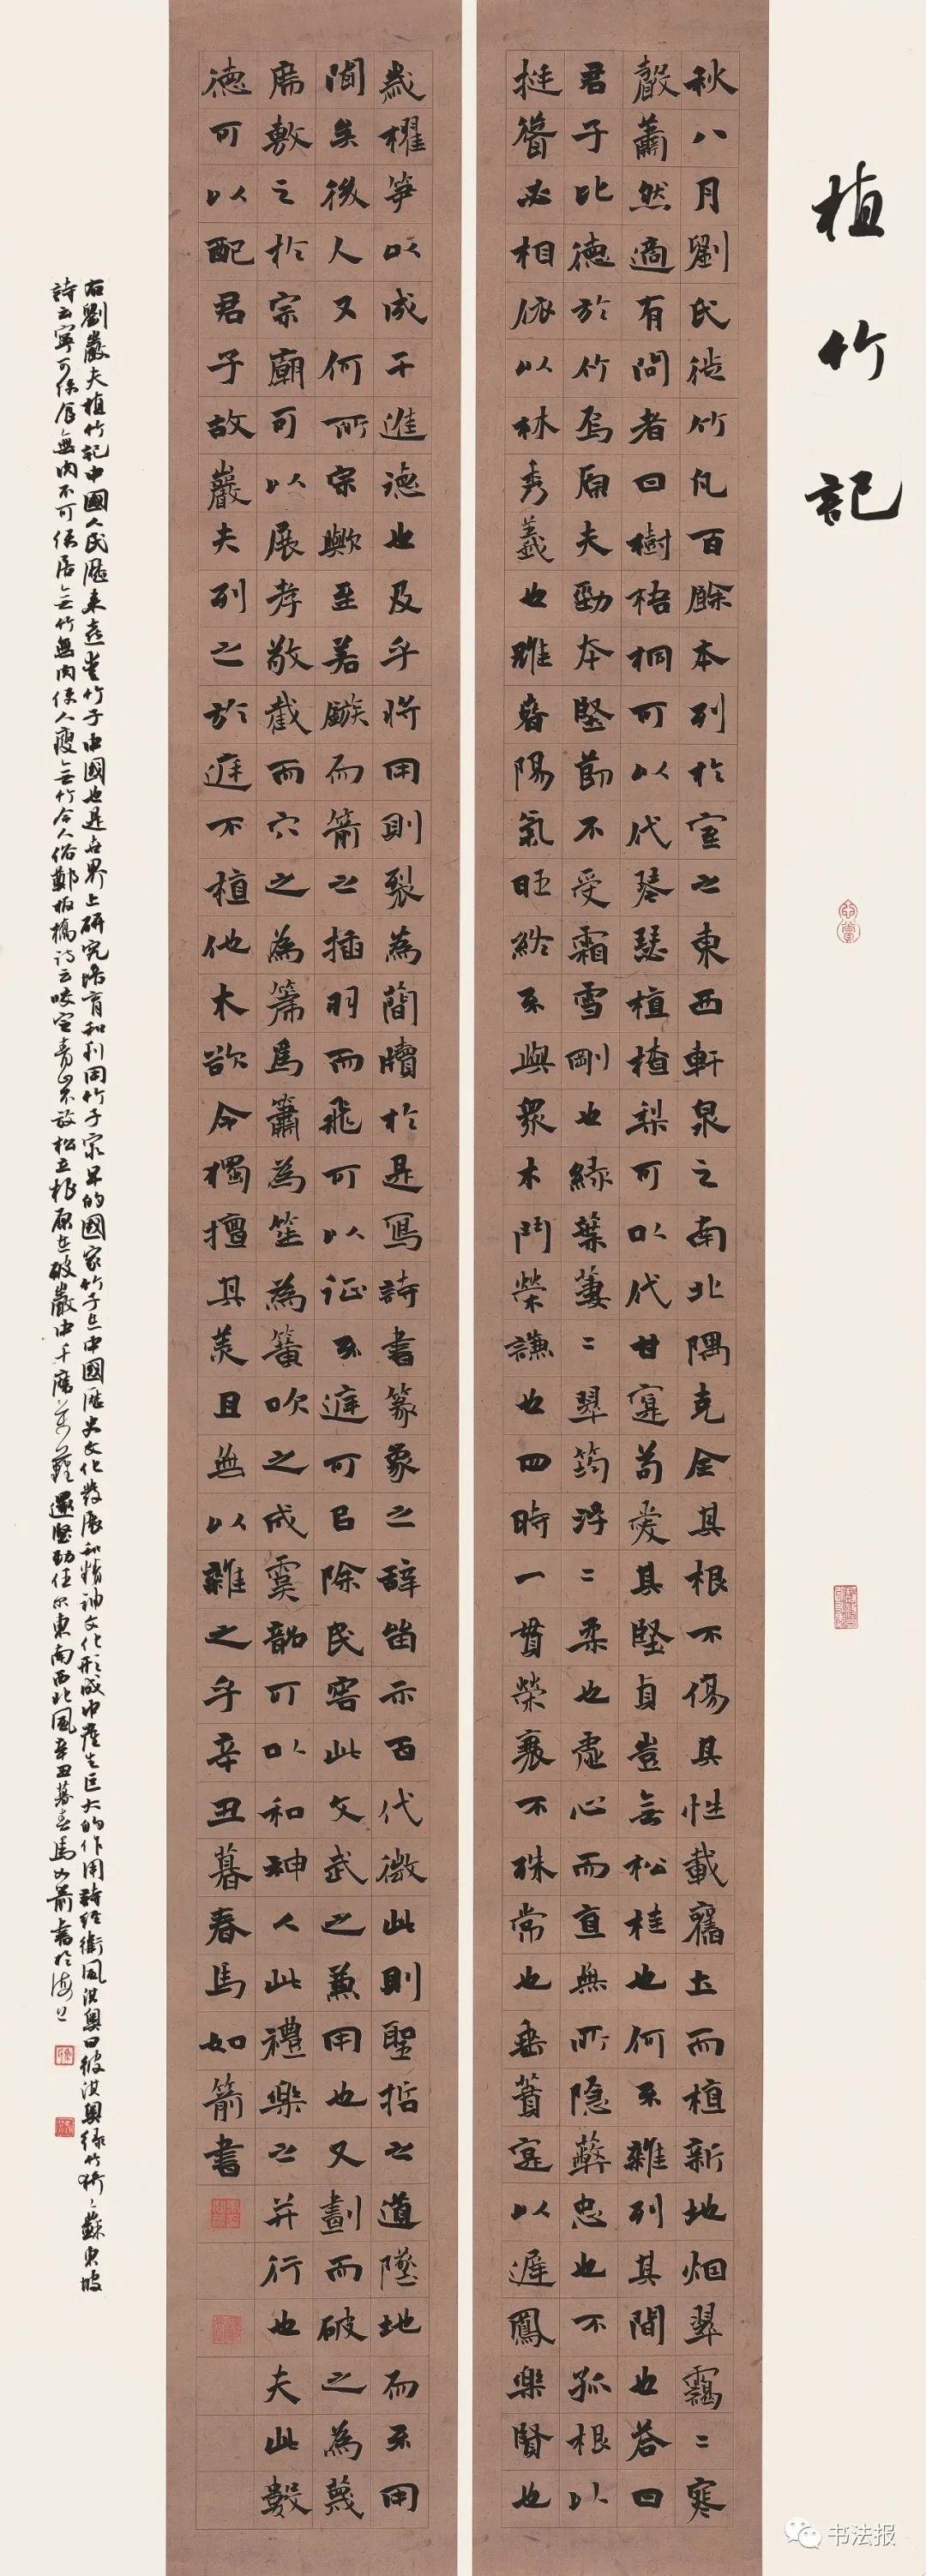 植竹記
秋八月劉氏徙竹凡百餘本列於室之東西軒泉之南北隅克全其根不傷其性載舊土而植新地烟翠靄二寒
聲蕭然適有問者曰樹梧桐可以代琴瑟植楂梨可以代甘實苟愛其堅貞豈無松桂也何不雜列其間也答曰
君子比德於竹焉原夫勁本堅節不受霜雪剛也綠葉萋二翠筠浮二柔也虛心而直無所隱蔽忠也不孤根以
挺聳必相依以林秀義也雖春陽氣旺終不與衆木鬥榮謙也四時一貫榮衰不殊常也垂蕡實以遲鳳樂賢也
歲櫂笋以成干進德也及乎將用則裂為簡牘於是寫詩書篆象之辭留示百代微此則聖哲之道墜地而不用
聞矣後人又何所宗歟至若鏃而箭之插羽而飛可以征不庭可㠯除民害此文武之兼用也又劃而破之為蔑
席敷之於宗廟可以展孝敬截而穴之為篪為簫為笙為簧吹之成虞韶可以和神人此禮樂之并行也夫此數
德可以配君子故巖夫列之於庭不植他木欲令獨擅其美且無以雜之乎辛丑暮春馬如箭書
右劉巖夫植竹記中國人民歷來喜愛竹子中國也是世界上研究培育和利用竹子最早的國家竹子在中國歷史文化發展和精神文化形成中產生巨大的作用詩經衛風淇奧曰彼淇奧綠竹猗猗蘇東坡
詩云寧可使食無肉不可使居無竹無肉使人瘦無竹令人俗鄭板橋詩云咬定青山不放松立根原在破巖中千磨萬擊還堅勁任尔東南西北風辛丑暮春馬如箭書於海上
书法报